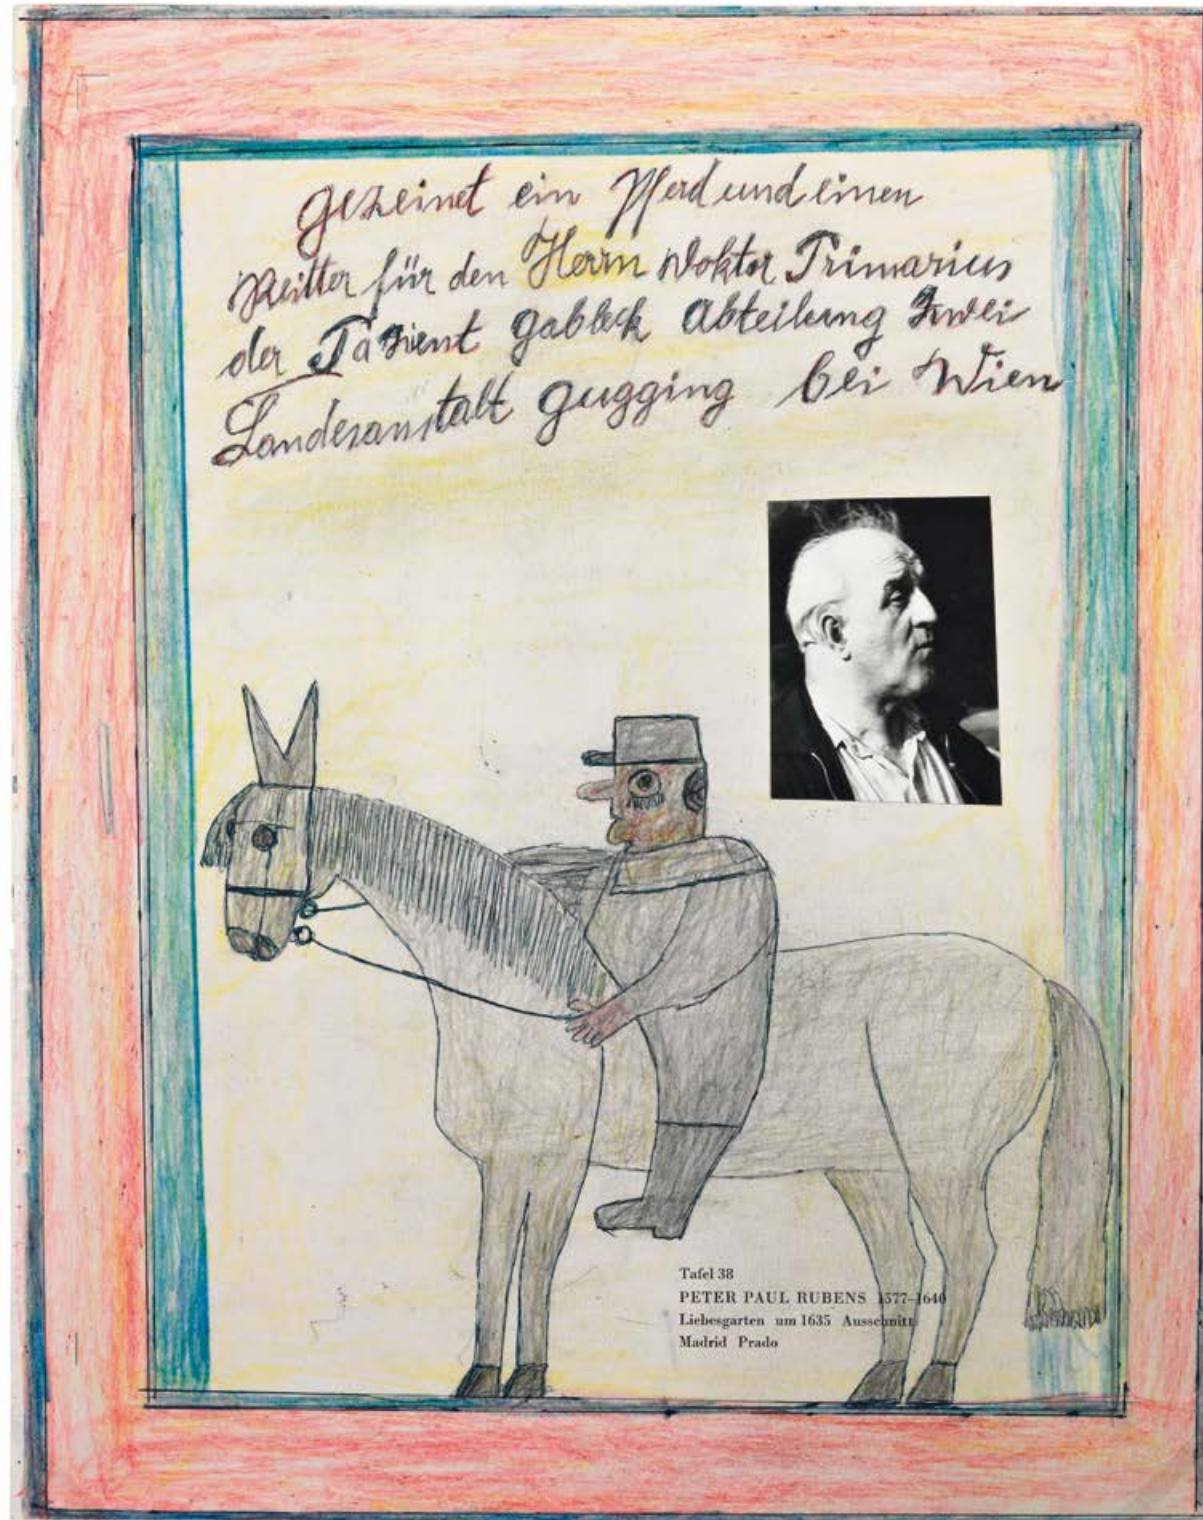 gezeinet ein Pferd und einen
Reitter für den Herrn Doktor Primarius
der Pazient gableck Abteilung Zwei
Landesanstalt gugging bei Wien
Tafel 38
PETER PAUL RUBENS 1577–1640
Liebesgarten um 1635 Ausschnitt
Madrid Prado